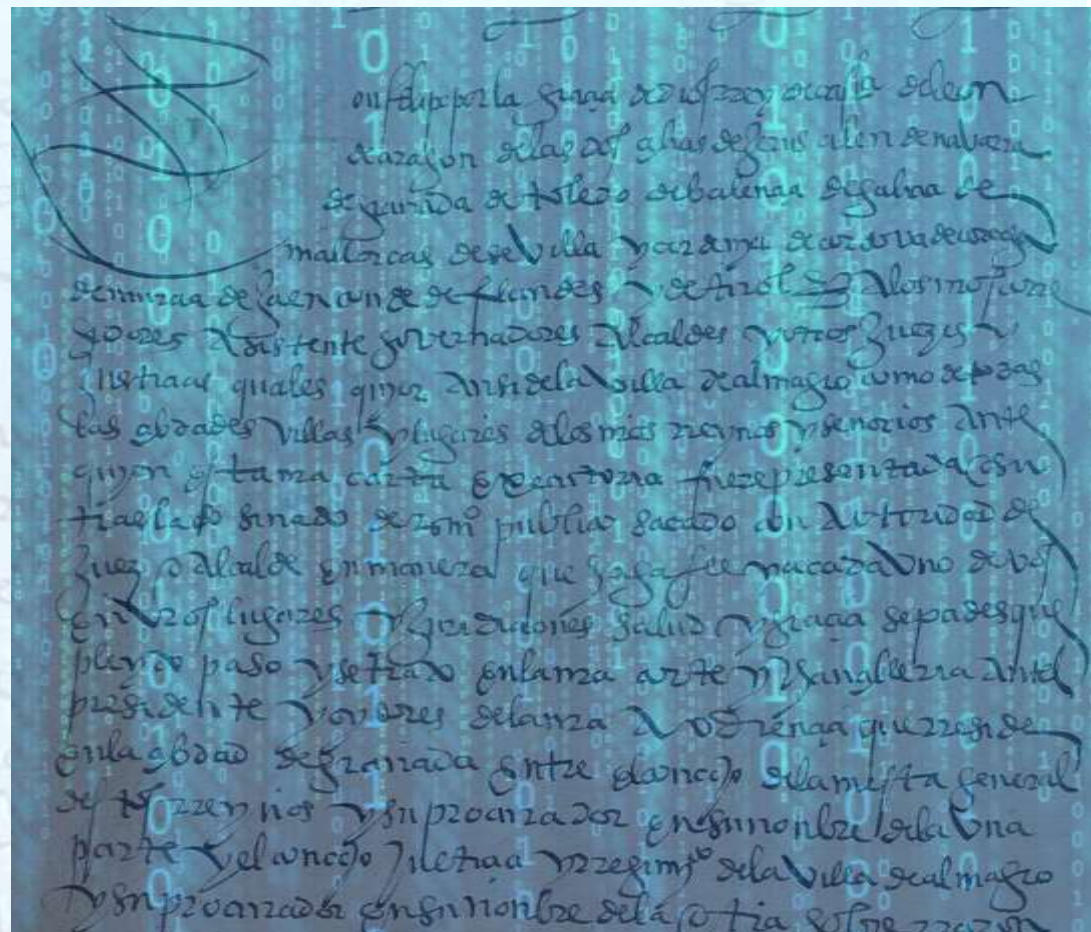 on felipe por la graçia de dios rrey de castilla de leon
de aragon de las dos çiçilias de jerusalen de navarra
de granada de toledo de balençia de galiçia de
mallorcas de sevilla de çerdeña de cordova de corçega
de murçia de jaen conde de flandes y de tirol A los
Asistente governadores Alcaldes y otros Juezes y
Justiçias quales quier Ansi de la villa de almagro como de todas
las çibdades villas y lugares de los mis rreynos y señorios Ante
quyen esta mi carta executoria fuere presentada o su
traslado sinado de publico sacado con Autoridad de
Juez o Alcalde en manera que haga fee y a cada Uno de vos
en lugares y juridiçiones salud y graçia sepades que
pleyto paso y se trato en la mi corte y chançilleria Antel
presidente y oydores de la mia Abdiençia que rreside
en la çibdad de granada entre el conçejo de la mesta general
de rreynos y su procurador en su nonbre de la Una
parte y el conçejo justiçia y rregimyº de la Villa de almagro
y su procurador en su nonbre de la otra sobre rrazon